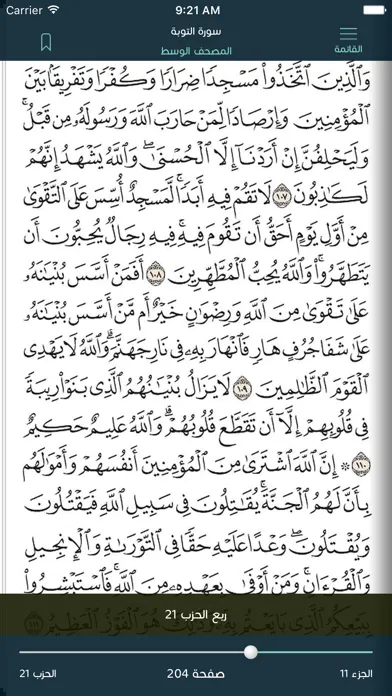 Carrier 9:21 AM
سورة التوبة
المصحف الوسط
القائمة
وَٱلَّذِينَ ٱتَّخَذُوا۟ مَسْجِدًا ضِرَارًا وَكُفْرًا وَتَفْرِيقًۢا بَيْنَ
ٱلْمُؤْمِنِينَ وَإِرْصَادًا لِّمَنْ حَارَبَ ٱللَّهَ وَرَسُولَهُۥ مِن قَبْلُ ۚ
وَلَيَحْلِفُنَّ إِنْ أَرَدْنَآ إِلَّا ٱلْحُسْنَىٰ ۖ وَٱللَّهُ يَشْهَدُ إِنَّهُمْ
لَكَـٰذِبُونَ ١٠٧ لَا تَقُمْ فِيهِ أَبَدًا ۚ لَّمَسْجِدٌ أُسِّسَ عَلَى ٱلتَّقْوَىٰ
مِنْ أَوَّلِ يَوْمٍ أَحَقُّ أَن تَقُومَ فِيهِ ۚ فِيهِ رِجَالٌ يُحِبُّونَ أَن
يَتَطَهَّرُوا۟ ۚ وَٱللَّهُ يُحِبُّ ٱلْمُطَّهِّرِينَ ١٠٨ أَفَمَنْ أَسَّسَ بُنْيَـٰنَهُۥ
عَلَىٰ تَقْوَىٰ مِنَ ٱللَّهِ وَرِضْوَٰنٍ خَيْرٌ أَم مَّنْ أَسَّسَ بُنْيَـٰنَهُۥ
عَلَىٰ شَفَا جُرُفٍ هَارٍ فَٱنْهَارَ بِهِۦ فِى نَارِ جَهَنَّمَ ۗ وَٱللَّهُ لَا يَهْدِى
ٱلْقَوْمَ ٱلظَّـٰلِمِينَ ١٠٩ لَا يَزَالُ بُنْيَـٰنُهُمُ ٱلَّذِى بَنَوْا۟ رِيبَةً
فِى قُلُوبِهِمْ إِلَّآ أَن تَقَطَّعَ قُلُوبُهُمْ ۗ وَٱللَّهُ عَلِيمٌ حَكِيمٌ
١١٠ ۞ إِنَّ ٱللَّهَ ٱشْتَرَىٰ مِنَ ٱلْمُؤْمِنِينَ أَنفُسَهُمْ وَأَمْوَٰلَهُم
بِأَنَّ لَهُمُ ٱلْجَنَّةَ ۚ يُقَـٰتِلُونَ فِى سَبِيلِ ٱللَّهِ فَيَقْتُلُونَ
وَيُقْتَلُونَ ۖ وَعْدًا عَلَيْهِ حَقًّا فِى ٱلتَّوْرَىٰةِ وَٱلْإِنجِيلِ
وَٱلْقُرْءَانِ ۚ وَمَنْ أَوْفَىٰ بِعَهْدِهِۦ مِنَ ٱللَّهِ ۚ فَٱسْتَبْشِرُوا۟
بِبَيْعِكُمُ ٱلَّذِى بَايَعْتُم بِهِۦ ۚ وَذَٰلِكَ هُوَ ٱلْفَوْزُ ٱلْعَظِيمُ ١١١
ربع الحزب 21
الجزء 11
صفحة 204
الحزب 21